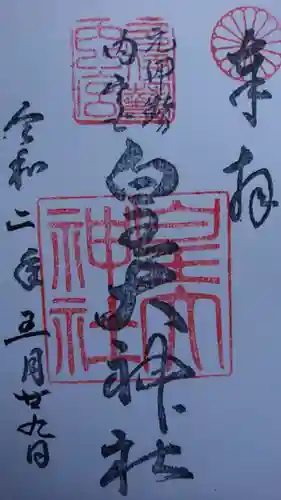 奉拝
元伊勢
内宮
皇大神社
皇大
神社
令和二年五月廿九日